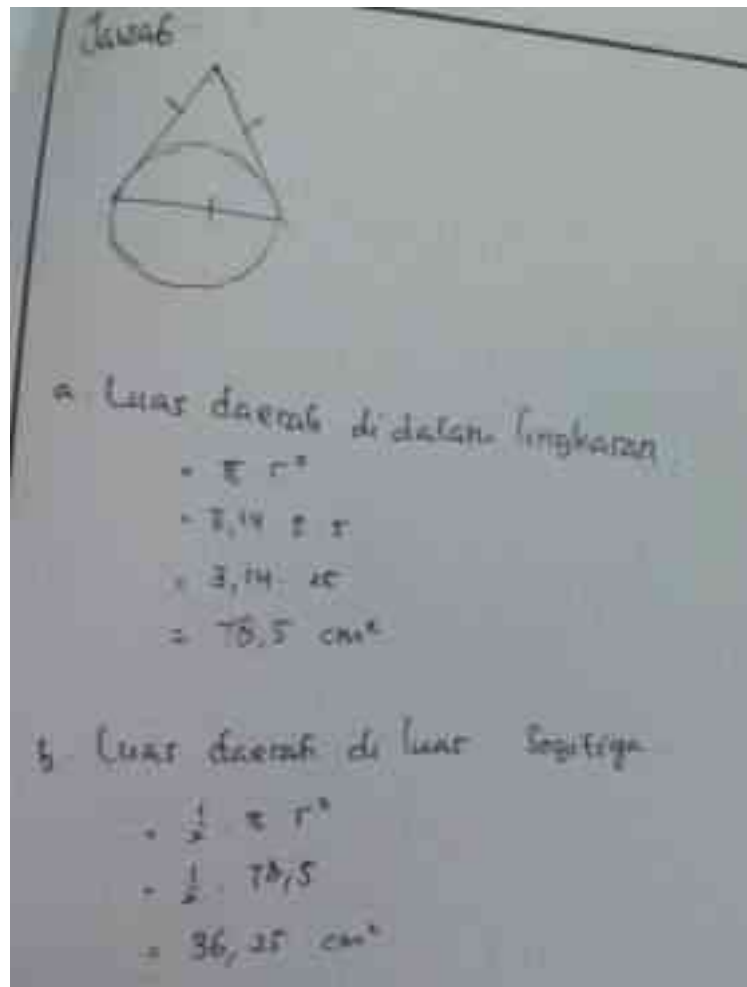 Jawab
a. Luas daerah di dalam lingkaran
= π r²
= 3,14 5 5
= 3,14 . 25
= 78,5 cm²
b. Luas daerah di luar Segitiga
= 1/2 . π r²
= 1/2 . 78,5
= 36,25 cm²